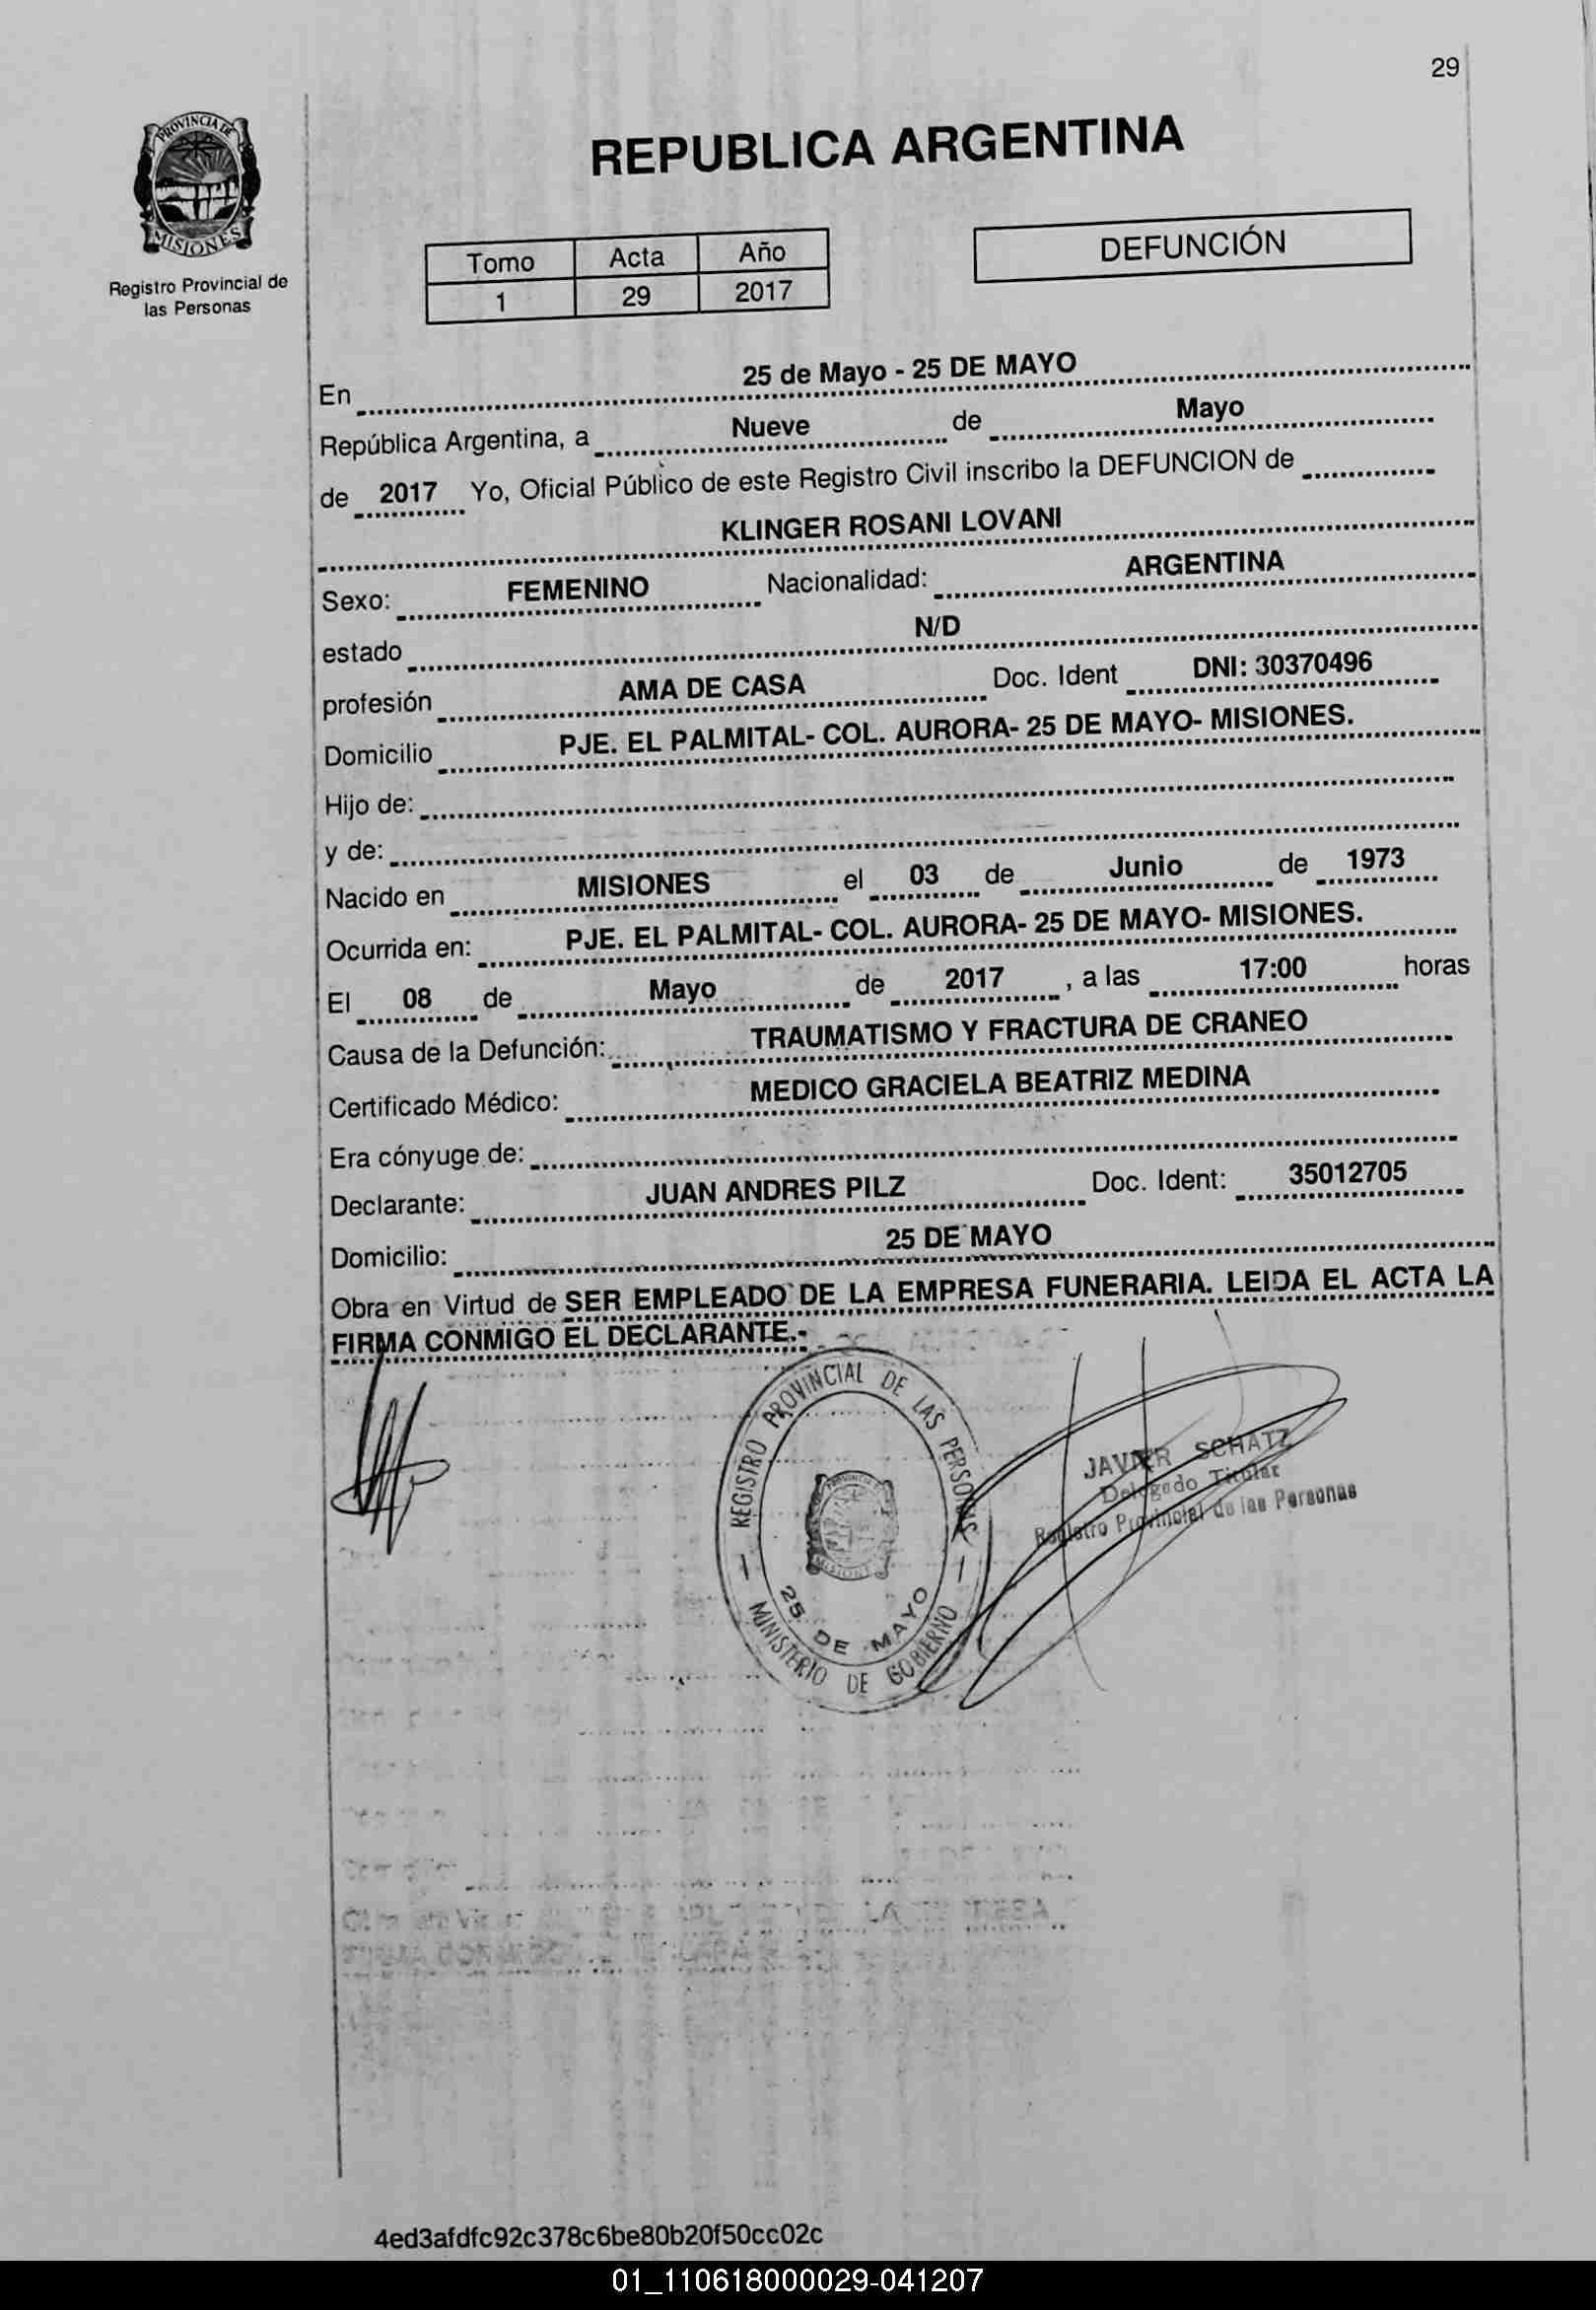 29
PROVINCIA DE
MISIONES
Registro Provincial de
las Personas
REPUBLICA ARGENTINA
Tomo Acta Año
1 29 2017
DEFUNCIÓN
En 25 de Mayo - 25 DE MAYO
República Argentina, a Nueve de Mayo
de 2017 Yo, Oficial Público de este Registro Civil inscribo la DEFUNCION de
KLINGER ROSANI LOVANI
Sexo: FEMENINO Nacionalidad: ARGENTINA
estado N/D
profesión AMA DE CASA Doc. Ident DNI: 30370496
Domicilio PJE. EL PALMITAL- COL. AURORA- 25 DE MAYO- MISIONES.
Hijo de:
y de:
Nacido en MISIONES el 03 de Junio de 1973
Ocurrida en: PJE. EL PALMITAL- COL. AURORA- 25 DE MAYO- MISIONES.
El 08 de Mayo de 2017 , a las 17:00 horas
Causa de la Defunción: TRAUMATISMO Y FRACTURA DE CRANEO
Certificado Médico: MEDICO GRACIELA BEATRIZ MEDINA
Era cónyuge de:
Declarante: JUAN ANDRES PILZ Doc. Ident: 35012705
Domicilio: 25 DE MAYO
Obra en Virtud de SER EMPLEADO DE LA EMPRESA FUNERARIA. LEIDA EL ACTA LA
FIRMA CONMIGO EL DECLARANTE.-
REGISTRO PROVINCIAL DE LAS PERSONAS
25 DE MAYO
MINISTERIO DE GOBIERNO
JAVIER SCHATZ
Delegado Titular
Registro Provincial de las Personas
4ed3afdfc92c378c6be80b20f50cc02c
01_110618000029-041207